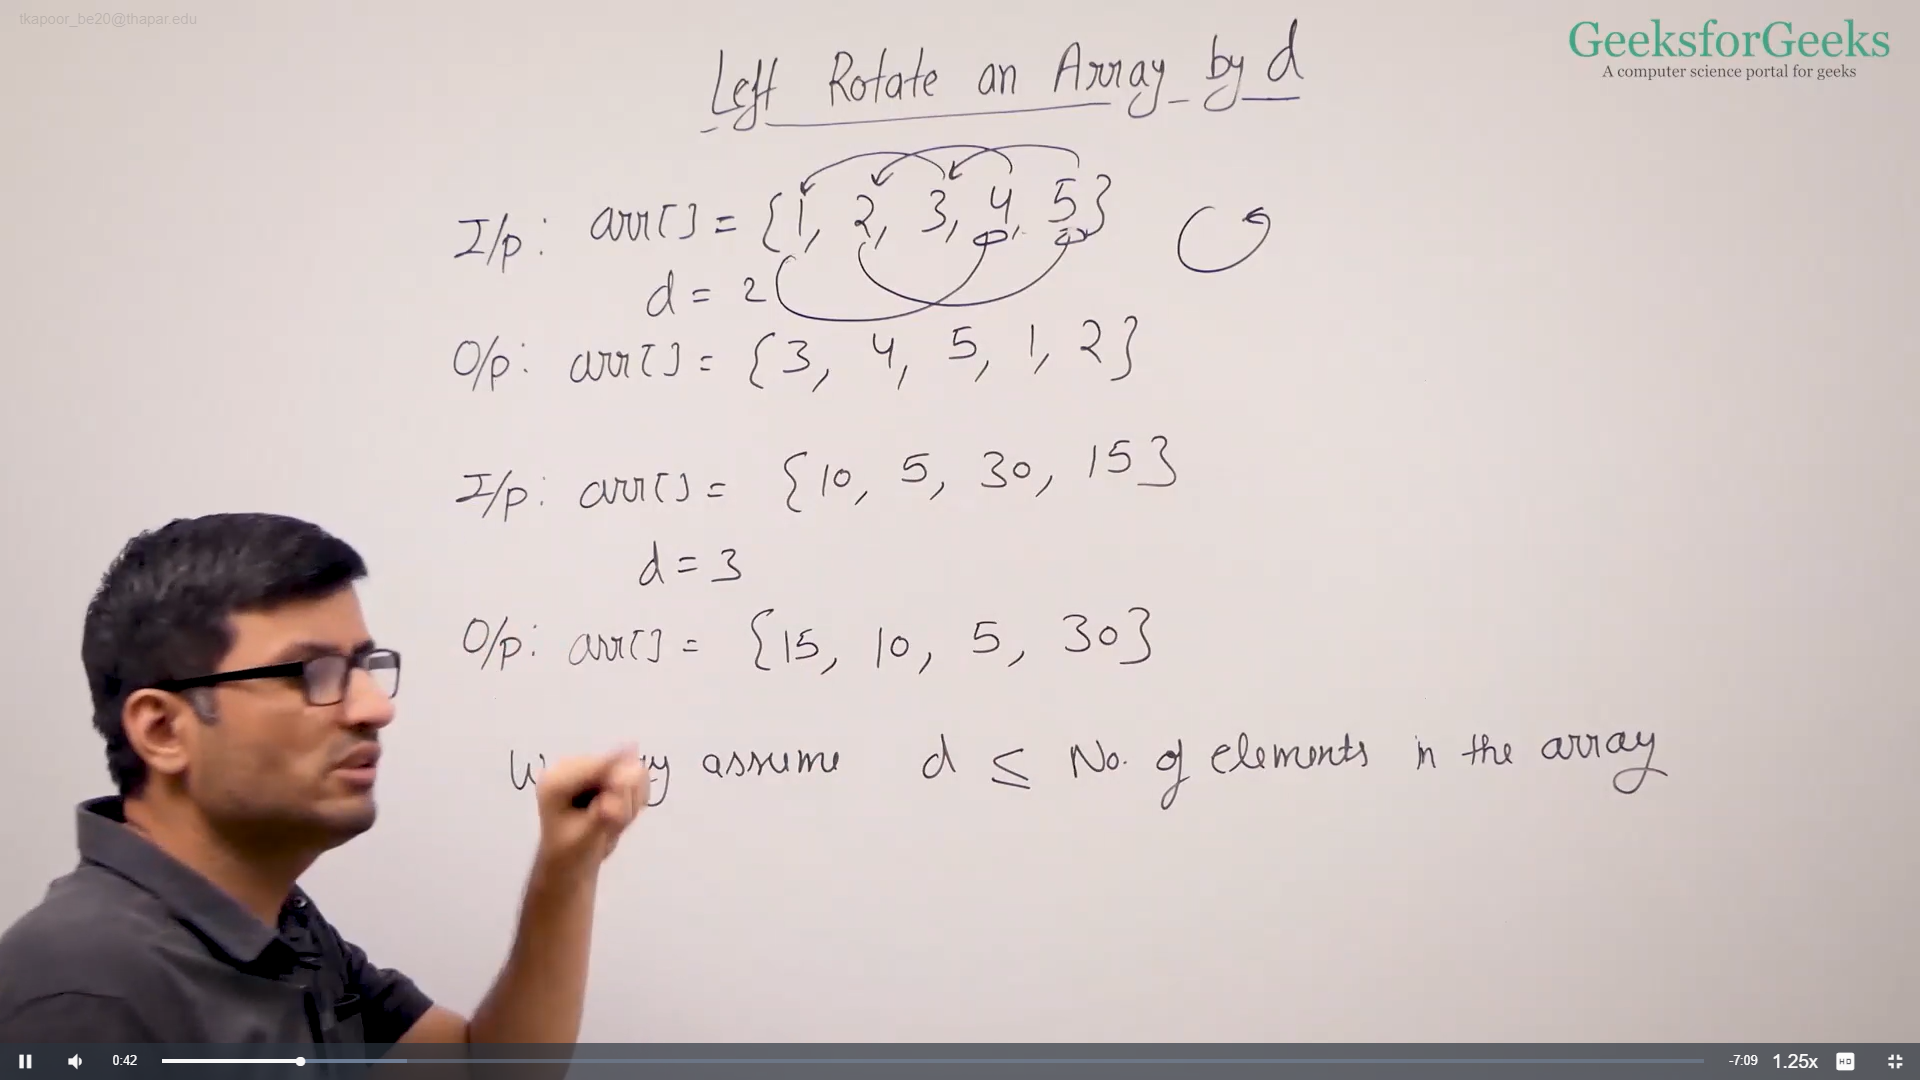 tkapoor_be20@thapar.edu
GeeksforGeeks
A computer science portal for geeks
Left Rotate an Array by d
I/p: arr[] = {1, 2, 3, 4, 5}
d = 2
O/p: arr[] = {3, 4, 5, 1, 2}
I/p: arr[] = {10, 5, 30, 15}
d = 3
O/p: arr[] = {15, 10, 5, 30}
assume d ≤ No. of elements in the array
0:42
-7:09
1.25x
HD